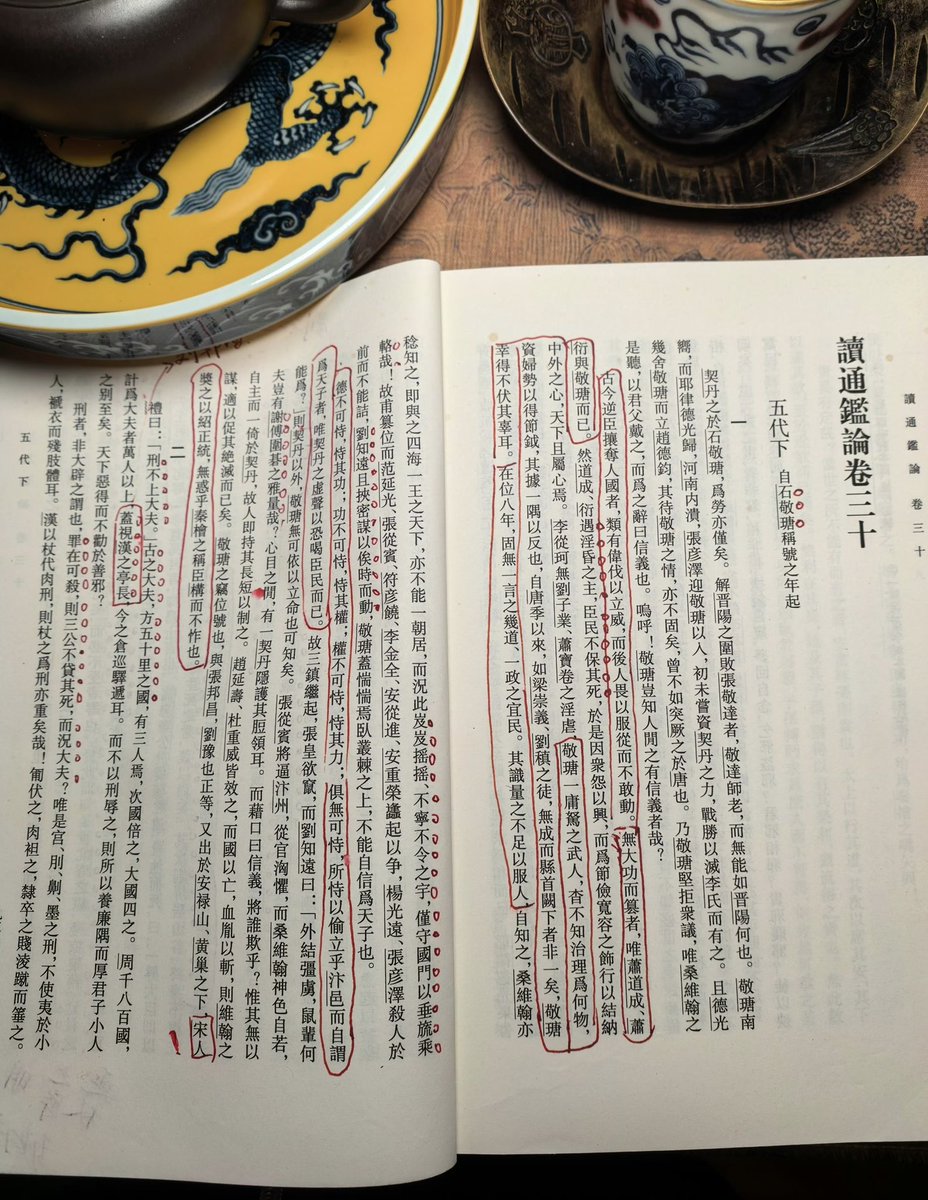 讀通鑑論　卷三十
讀通鑑論卷三十
五代下　自石敬瑭稱號之年起
一
契丹之於石敬瑭，爲勞亦僅矣。解晉陽之圍敗張敬達者，敬達師老，而無能如晉陽何也。敬瑭南
嚮，而耶律德光歸，河南内潰，張彥澤迎敬瑭以入，初未嘗資契丹之力，戰勝以滅李氏而有之。且德光
幾舍敬瑭而立趙德鈞，其待敬瑭之情，亦不固矣，曾不如突厥之於唐也。乃敬瑭堅拒衆議，唯桑維翰之
是聽，以君父戴之，而爲之辭曰信義也。嗚呼！敬瑭豈知人閒之有信義者哉？
古今逆臣攘奪人國者，類有偉伐以立威，而後人畏以服從而不敢動。無大功而篡者，唯蕭道成、蕭
衍與敬瑭而已。然道成、衍遇淫昏之主，臣民不保其死，於是因衆怨以興，而爲節儉寬容之飾行以結納
中外之心，天下且屬心焉。李從珂無劉子業、蕭寶卷之淫虐，敬瑭一庸駑之武人，杳不知治理爲何物，
資婦勢以得節鉞，其據一隅以反也，自唐季以來，如梁崇義、劉稹之徒，無成而縣首闕下者非一矣，敬瑭
幸得不伏其辜耳。在位八年，固無一言之幾道、一政之宜民。其識量之不足以服人，自知之，桑維翰亦
稔知之，即與之四海一王之天下，亦不能一朝居，而況此岌岌摇摇、不寧不令之宇，僅守國門以垂旒乘
輅哉！故甫篡位而范延光、張從賓、符彥饒、李金全、安從進、安重榮蠭起以争，楊光遠、張彥澤殺人於
前而不能詰，劉知遠且挾密謀以俟時而動，敬瑭蓋惴惴焉臥叢棘之上，不能自信爲天子也。
德不可恃，恃其功；功不可恃，恃其權；權不可恃，恃其力；俱無可恃，所恃以偷立乎汴邑而自謂
爲天子者，唯契丹之虚聲以恐喝臣民而已。故三鎮繼起，張皇欲竄，而劉知遠曰：「外結彊虜，鼠輩何
能爲？」則契丹以外，敬瑭無可依以立命也可知矣。張從賓將逼汴州，從官洶懼，而桑維翰神色自若，
夫豈有謝傅圍碁之雅量哉？心目之閒，有一契丹隱護其脰領耳。而藉口曰信義，將誰欺乎？惟其無以
自主而一倚於契丹，故人即持其長短以制之。趙延壽、杜重威皆效之，而國以亡，血胤以斬，則維翰之
謀，適以促其絶滅而已矣。敬瑭之竊位號也，與張邦昌、劉豫也正等，又出於安禄山、黄巢之下，宋人
獎之以紹正統，無惑乎秦檜之稱臣構而不怍也。
二
禮曰：「刑不上大夫。」古之大夫，方五十里之國，有三人焉，次國倍之，大國四之。周千八百國，
計爲大夫者萬人以上，蓋視漢之亭長，今之倉巡驛遞耳。而不以刑辱之，則所以養廉隅而厚君子小人
之别至矣。天下惡得而不勸於善邪？
刑者，非大辟之謂也。罪在可殺，則三公不貸其死，而況大夫？唯是宫、刖、劓、墨之刑，不使夷於小
人，褫衣而殘肢體耳。漢以杖代肉刑，則杖之爲刑亦重矣哉！匍伏之，肉袒之，隸卒之賤淩蹴而箠之。
五代下